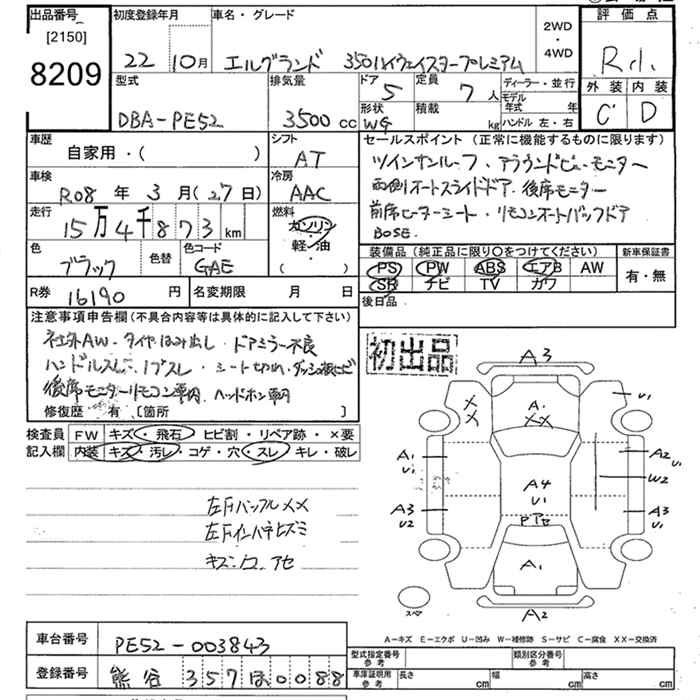 出品番号 初度登録年月 車名・グレード 2WD・4WD 評価点
[2150]
8209
22 10月 エルグランド 350ハイウェイスタープレミアム R.1.
型式 排気量 ドア 5 定員 7人 ディーラー・並行 外装 内装
モデル年式 年
DBA-PE52 3500cc 形状 WG 積載 kg ハンドル 左・右 C' D
車歴 シフト セールスポイント（正常に機能するものに限ります）
自家用・（ ） AT ツインサンルーフ・アラウンドビューモニター
車検 冷房 両側オートスライドドア．後席モニター
R08年3月(27日) AAC 前席ヒーターシート・リモコンオートバックドア
走行 燃料 BOSE.
15万4千873km ガソリン
軽・油
( )
色 色替 色コード 装備品（純正品に限り〇をつけてください） 新車保証書
ブラック GAE PS PW ABS エアB AW 有・無
SR ナビ TV カワ
R券 16190円 名変期限 月 日 後日品
注意事項申告欄（不具合内容等は具体的に記入して下さい）
社外AW．タイヤはみ出し．ドアミラー不良
ハンドルスレ．
シート切れ・ダッシュ
後席モニターリモコン車内．ヘッドホン車内
修復歴・有［箇所 ］
初出品
検査員 FW キズ・飛石・ヒビ割・リペア跡・×要
記入欄 内装 キズ・汚レ・コゲ・穴・スレ・キレ・破レ
左Fバッフル XX
左Fインパネヒズミ
キズ．凹．アセ
A3
XX U1
A. XX
A1 U1 A2 U1
W2
A4 U1
A3 U2 A3 U1
Pアセ
A1
スペア A2
A-キズ E-エクボ U-凹み W-補修跡 S-サビ C-腐食 XX-交換済
車台番号 PE52-003843
型式指定番号 参考 類別区分番号 参考
登録番号 熊谷 357 ほ 0088
車庫証明用 参考 長さ cm 幅 cm 高さ cm